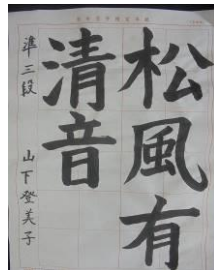 松風有
清音
準三段 山下登美子